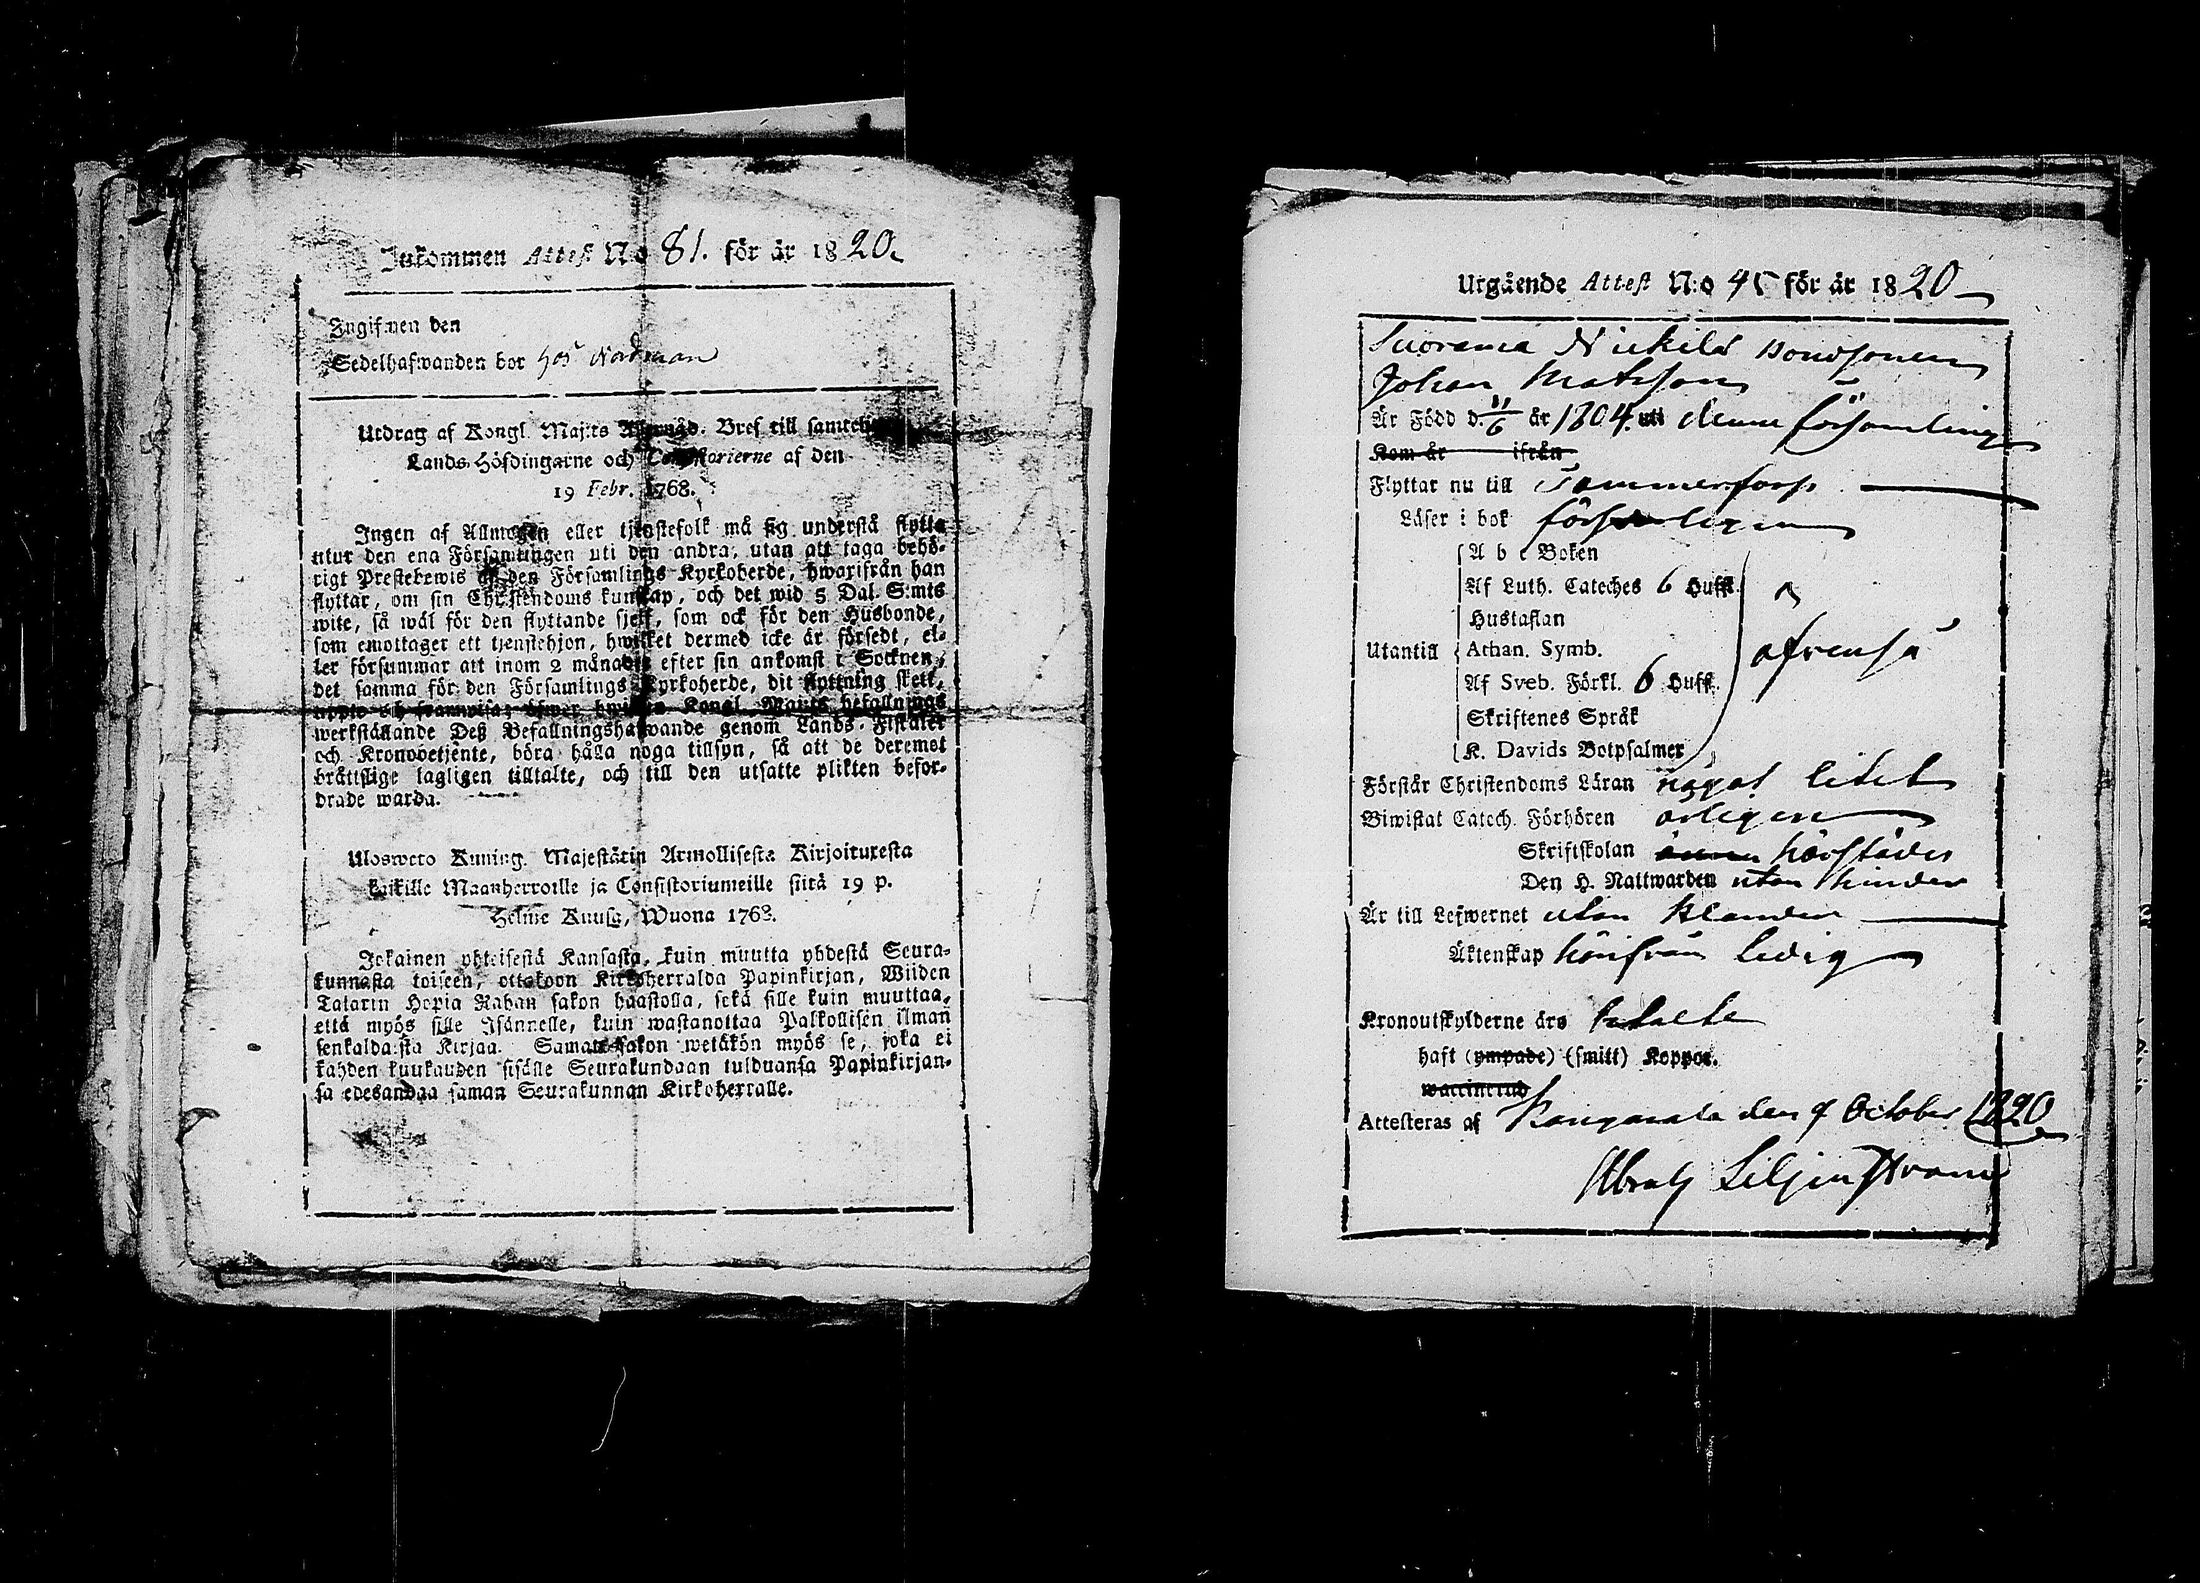 Inkommen Attest N:o 81. för år 1820.
Ingifwen den
Sedelhafwanden bor hos Nordman
Utdrag af Kongl. Maj:ts Allernåd. Bref till samtelige
Lands-Höfdingarne och Consistorierne af den
19 Febr. 1768.
Ingen af Allmogen eller tjenstefolk må sig understå flytta
utur den ena Församlingen uti den andra, utan att taga behö-
rigt Prestebewis af den Församlings Kyrkoherde, hwarifrån han
flyttar, om sin Christendoms kunskap, och det wid 5 Dal. S:mts
wite, så wäl för den flyttande sjelf, som ock för den Husbonde,
som emottager ett tjenstehjon, hwilket dermed icke är försedt, el-
ler försummar att inom 2 månader efter sin ankomst i Socknen,
det samma för den Församlings Kyrkoherde, dit flyttning skett,
uppte och framwisa; öfwer hwilken Kongl. Maj:ts befallnings
werkställande Deß Befallningshafwande genom Lands-Fiskaler
och Kronobetjente, böra hålla noga tillsyn, så att de deremot
brättslige lagligen tilltalte, och till den utsatte plikten befor-
drade warda.
Ulosweto Kuning. Majestätin Armollisesta Kirjoituxesta
kaikille Maanherroille ja Consistoriumeille siitä 19 p.
Helme Kuusa, Wuona 1768.
Jokainen yhteisestä Kansasta, kuin muutta yhdestä Seura-
kunnasta toiseen, ottakoon Kirkoherralda Papinkirjan, Wiiden
Talarin Hopia Rahan sakon haastolla, sekä sille kuin muuttaa,
että myös sille Isännelle, kuin wastanottaa Palkollisen ilman
senkaldaista Kirjaa. Saman sakon wetäkön myös se, joka ei
kahden kuukauden sisälle Seurakundaan tulduansa Papinkirjan-
sa edesandaa saman Seurakunnan Kirkoherralle.
Utgående Attest N:o 45 för år 1820
Suorama Nickilä Bondsonen
Johan Matsson
Är Född d. 11/6 år 1804. uti denne församling
Kom år ifrån
Flyttar nu till Tammerfors
Läser i bok förswarligen
A b c Boken
Af Luth. Cateches 6 Hufst.
Hustaflan
Utantill Athan. Symb. ofwenså
Af Sveb. Förkl. 6 Hufst.
Skriftenes Språk
K. Davids Botpsalmer
Förstår Christendoms Läran något litet
Biwistat Catech. Förhören årligen
Skriftskolan härstädes
Den H. Nattwarden utan hinder
Är till Lefwernet utan klander
Äktenskap härifrån ledig
Kronoutskylderne äro betalte
haft (ympade) (smitt) Koppor.
waccinerad
Attesteras af Kangasala den 9 October 1820
Abrah Liljenstrand